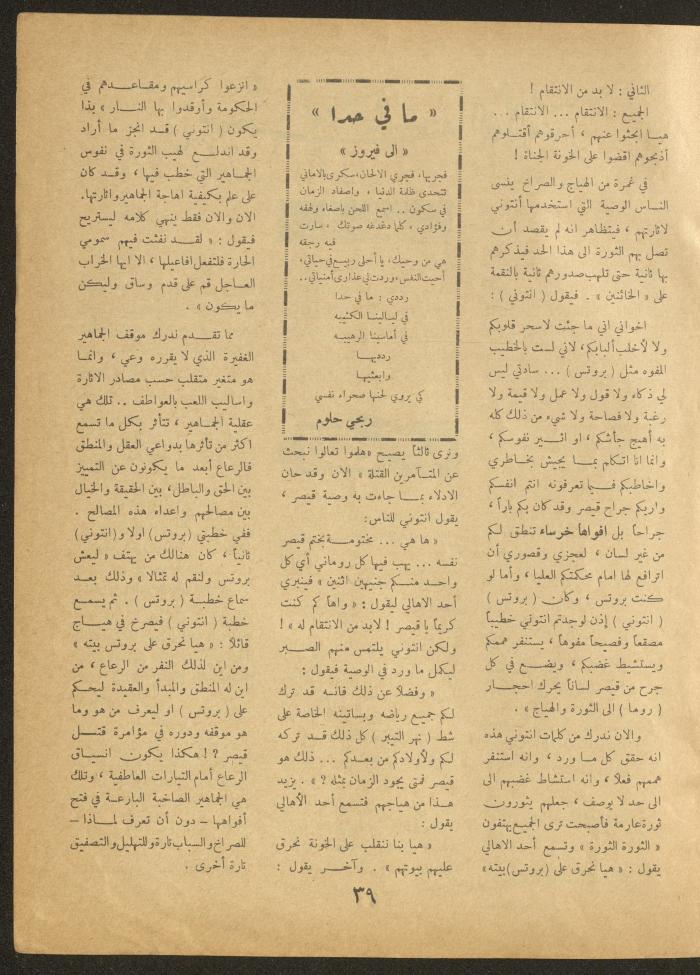 الثاني : لا بد من الانتقام !
الجميع : الانتقام ... الانتقام ...
هيا ابحثوا عنهم ، أحرقوهم أقتلوهم
أذبحوهم اقضوا على الخونة الجناة !
في غمرة من الهياج والصراخ ينسى
الناس الوصية التي استخدمها أنتوني
لاثارتهم ، فيتظاهر انه لم يقصد أن
تصل بهم الثورة الى هذا الحد فيذكرهم
بها ثانية حتى تلهب صدورهم ثانية بالنقمة
على « الخائنين » . فيقول ( انتوني ) :
اخواني اني ما جئت لاسحر قلوبكم
ولا لأخلب ألبابكم، لاني لست بالخطيب
المفوه مثل ( بروتس ) ... سادتي ليس
لي ذكاء ولا قول ولا عمل ولا قيمة ولا
رغبة ولا فصاحة ولا شيء من ذلك كله
به أهيج جأشكم ، او اثير نفوسكم ،
وانما انا اتكلم بما يجيش بخاطري
واخاطبكم فيما تعرفونه انتم انفسكم
واريكم جراح قيصر وقد كان بكم باراً ،
جراحاً بل افواها خرساء تنطق لكم
من غير لسان ، لعجزي وقصوري أن
اترافع لها امام محكمتكم العليا ، وأما لو
كنت بروتس ، وكان ( بروتس )
( انتوني ) إذن لوجدتم انتوني خطيباً
مصقعاً وفصيحاً مفوهاً ، يستنفر هممكم
ويستشيط غضبكم ، ويضع في كل
جرح من قيصر لساناً يحرك احجار
( روما ) الى الثورة والهياج » .
والان ندرك من كلمات انتوني هذه
انه حقق كل ما ورد ، وانه استنفر
هممهم فعلا ، وانه استشاط غضبهم الى
الى حد لا يوصف ، جعلهم يثورون
ثورة عارمة فأصبحت ترى الجميع يهتفون
« الثورة الثورة » وتسمع أحد الاهالي
يقول : « هيا نحرق على (بروتس) بيته»
« ما في حدا »
« الى فيروز »
فجريها، فجري الالحان، سكرى بالاماني
تتحدى ظلمة الدنيا ، واصفاد الزمان
في سكون .. اسمع اللحن باصغاء ولهفه
وفؤادي ، كلما دغدغه صوتك ، سارت
فيه رجفه
هي من وحيك، يا أحلى ربيع في حياتي،
أحيت النفس، وردت لي عذارى أمنياتي..
رددي : ما في حدا
في ليالينا الكئيبه
في أماسينا الرهيبه
رددیها
وابعثيها
كي يروي لحنها صحراء نفسي
ربحي حلوم
ونرى ثالثاً يصيح «هلموا تعالوا نبحث
عن المتآمرين القتلة » الان وقد حان
الادلاء بما جاءت به وصية قيصر ،
يقول انتوني للناس:
« ها هي ... مختومة بختم قيصر
نفسه ... يهب فيها كل روماني أي كل
واحد منكم جنيهين اثنين » فينبري
أحد الاهالي ليقول : « واهاً كم كنت
كريماً يا قيصر ! لابد من الانتقام له » !
ولكن انتوني يلتمس منهم الصبر
ليكمل ما ورد في الوصية فيقول :
« وفضلا عن ذلك فانه قد ترك
لكم جميع رياضه وبساتينه الخاصة على
شط ( نهر التيبر ) كل ذلك قد تركه
لكم ولأولادكم من بعدكم ... ذلك هو
قيصر فمتى يجود الزمان بمثله ? » . يزيد
هذا من هياجهم فتسمع أحد الأهالي
يقول :
« هيا بنا ننقلب على الخونة نحرق
عليهم بيوتهم » . وآخر يقول :
« انزعوا كراسيهم ومقاعدهم في
الحكومة وأرقدوا بها النار » بذا
يكون ( انتوني ) قد انجز ما أراد
وقد اندلع لهيب الثورة في نفوس
الجماهير التي خطب فيها ، وقد كان
على علم بكيفية اهاجة الجماهير واثارتها.
الان والان فقط ينهي كلامه ليستريح
فيقول : « لقد نفثت فيهم سمومي
الحارة فلتفعل افاعيلها ، الا ايها الخراب
العاجل قم على قدم وساق وليكن
ما يكون » .
مما تقدم ندرك موقف الجماهير
الغفيرة الذي لا يقرره وعي ، وانما
هو متغير متقلب حسب مصادر الاثارة
واساليب اللعب بالعواطف .. تلك هي
عقلية الجماهير ، تتأثر بكل ما تسمع
اكثر من تأثرها بدواعي العقل والمنطق
فالرعاع أبعد ما يكونون عن التمييز
بين الحق والباطل، بين الحقيقة والخيال
بين مصالحهم واعداء هذه المصالح .
ففي خطبتي (بروتس) اولا و(انتوني)
ثانياً ، كان هنالك من يهتف « ليعش
بروتس ولنقم له تمثالا » وذلك بعد
سماع خطبة ( بروتس ) . ثم يسمع
خطبة ( انتوني ) فيصرخ في هياج
قائلا : « هيا نحرق على بروتس بيته »
ومن اين لذلك النفر من الرعاع ، من
اين له المنطق والمبدأ والعقيدة ليحكم
على ( بروتس ) او ليعرف من هو وما
هو موقفه ودوره في مؤامرة قتل
قيصر ؟ ! هكذا يكون انسياق
الرعاع أمام التيارات العاطفية ، وتلك
هي الجماهير الصاخبة البارعة في فتح
أفواهها – دون أن تعرف لماذا –
للصراخ والسباب تارة وللتهليل والتصفيق
تارة أخرى .
٣٩